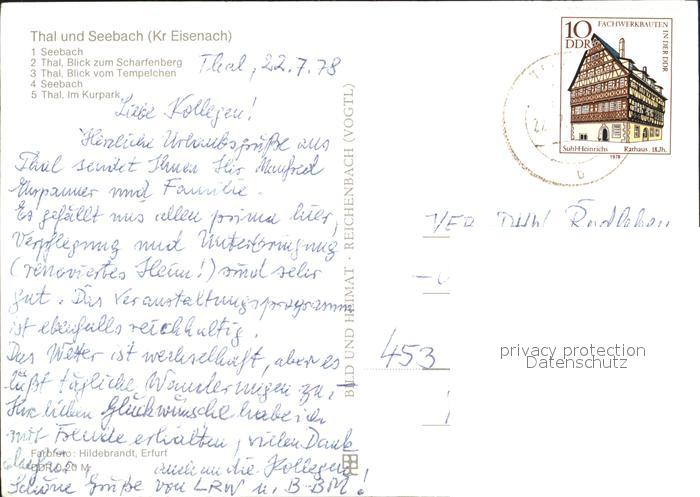 Thal und Seebach (Kr Eisenach)
1 Seebach
2 Thal, Blick zum Scharfenberg
3 Thal, Blick vom Tempelchen
4 Seebach
5 Thal, Im Kurpark
Thal, 22.7.78
Liebe Kollegen!
Herzliche Urlaubsgrüße aus
Thal sendet Ihnen Ihr Manfred
und Familie.
Es gefällt uns allen prima hier,
Verpflegung und Unterbringung
(renoviertes Heim!) sind sehr
gut. Das Veranstaltungsprogramm
ist ebenfalls reichhaltig.
Das Wetter ist wechselhaft, aber es
läßt tägliche Wanderungen zu.
Ihre lieben Glückwünsche habe ich
mit Freude erhalten, vielen Dank
dafür, auch an die Kollegen
Schöne Grüße von LRW u. B-BM!
Farbfoto: Hildebrandt, Erfurt
DDR 0,20 M
BILD UND HEIMAT · REICHENBACH (VOGTL)
10
DDR
FACHWERKBAUTEN
IN DER DDR
Suhl-Heinrichs Rathaus, 16.Jh.
1978
453
privacy protection
Datenschutz